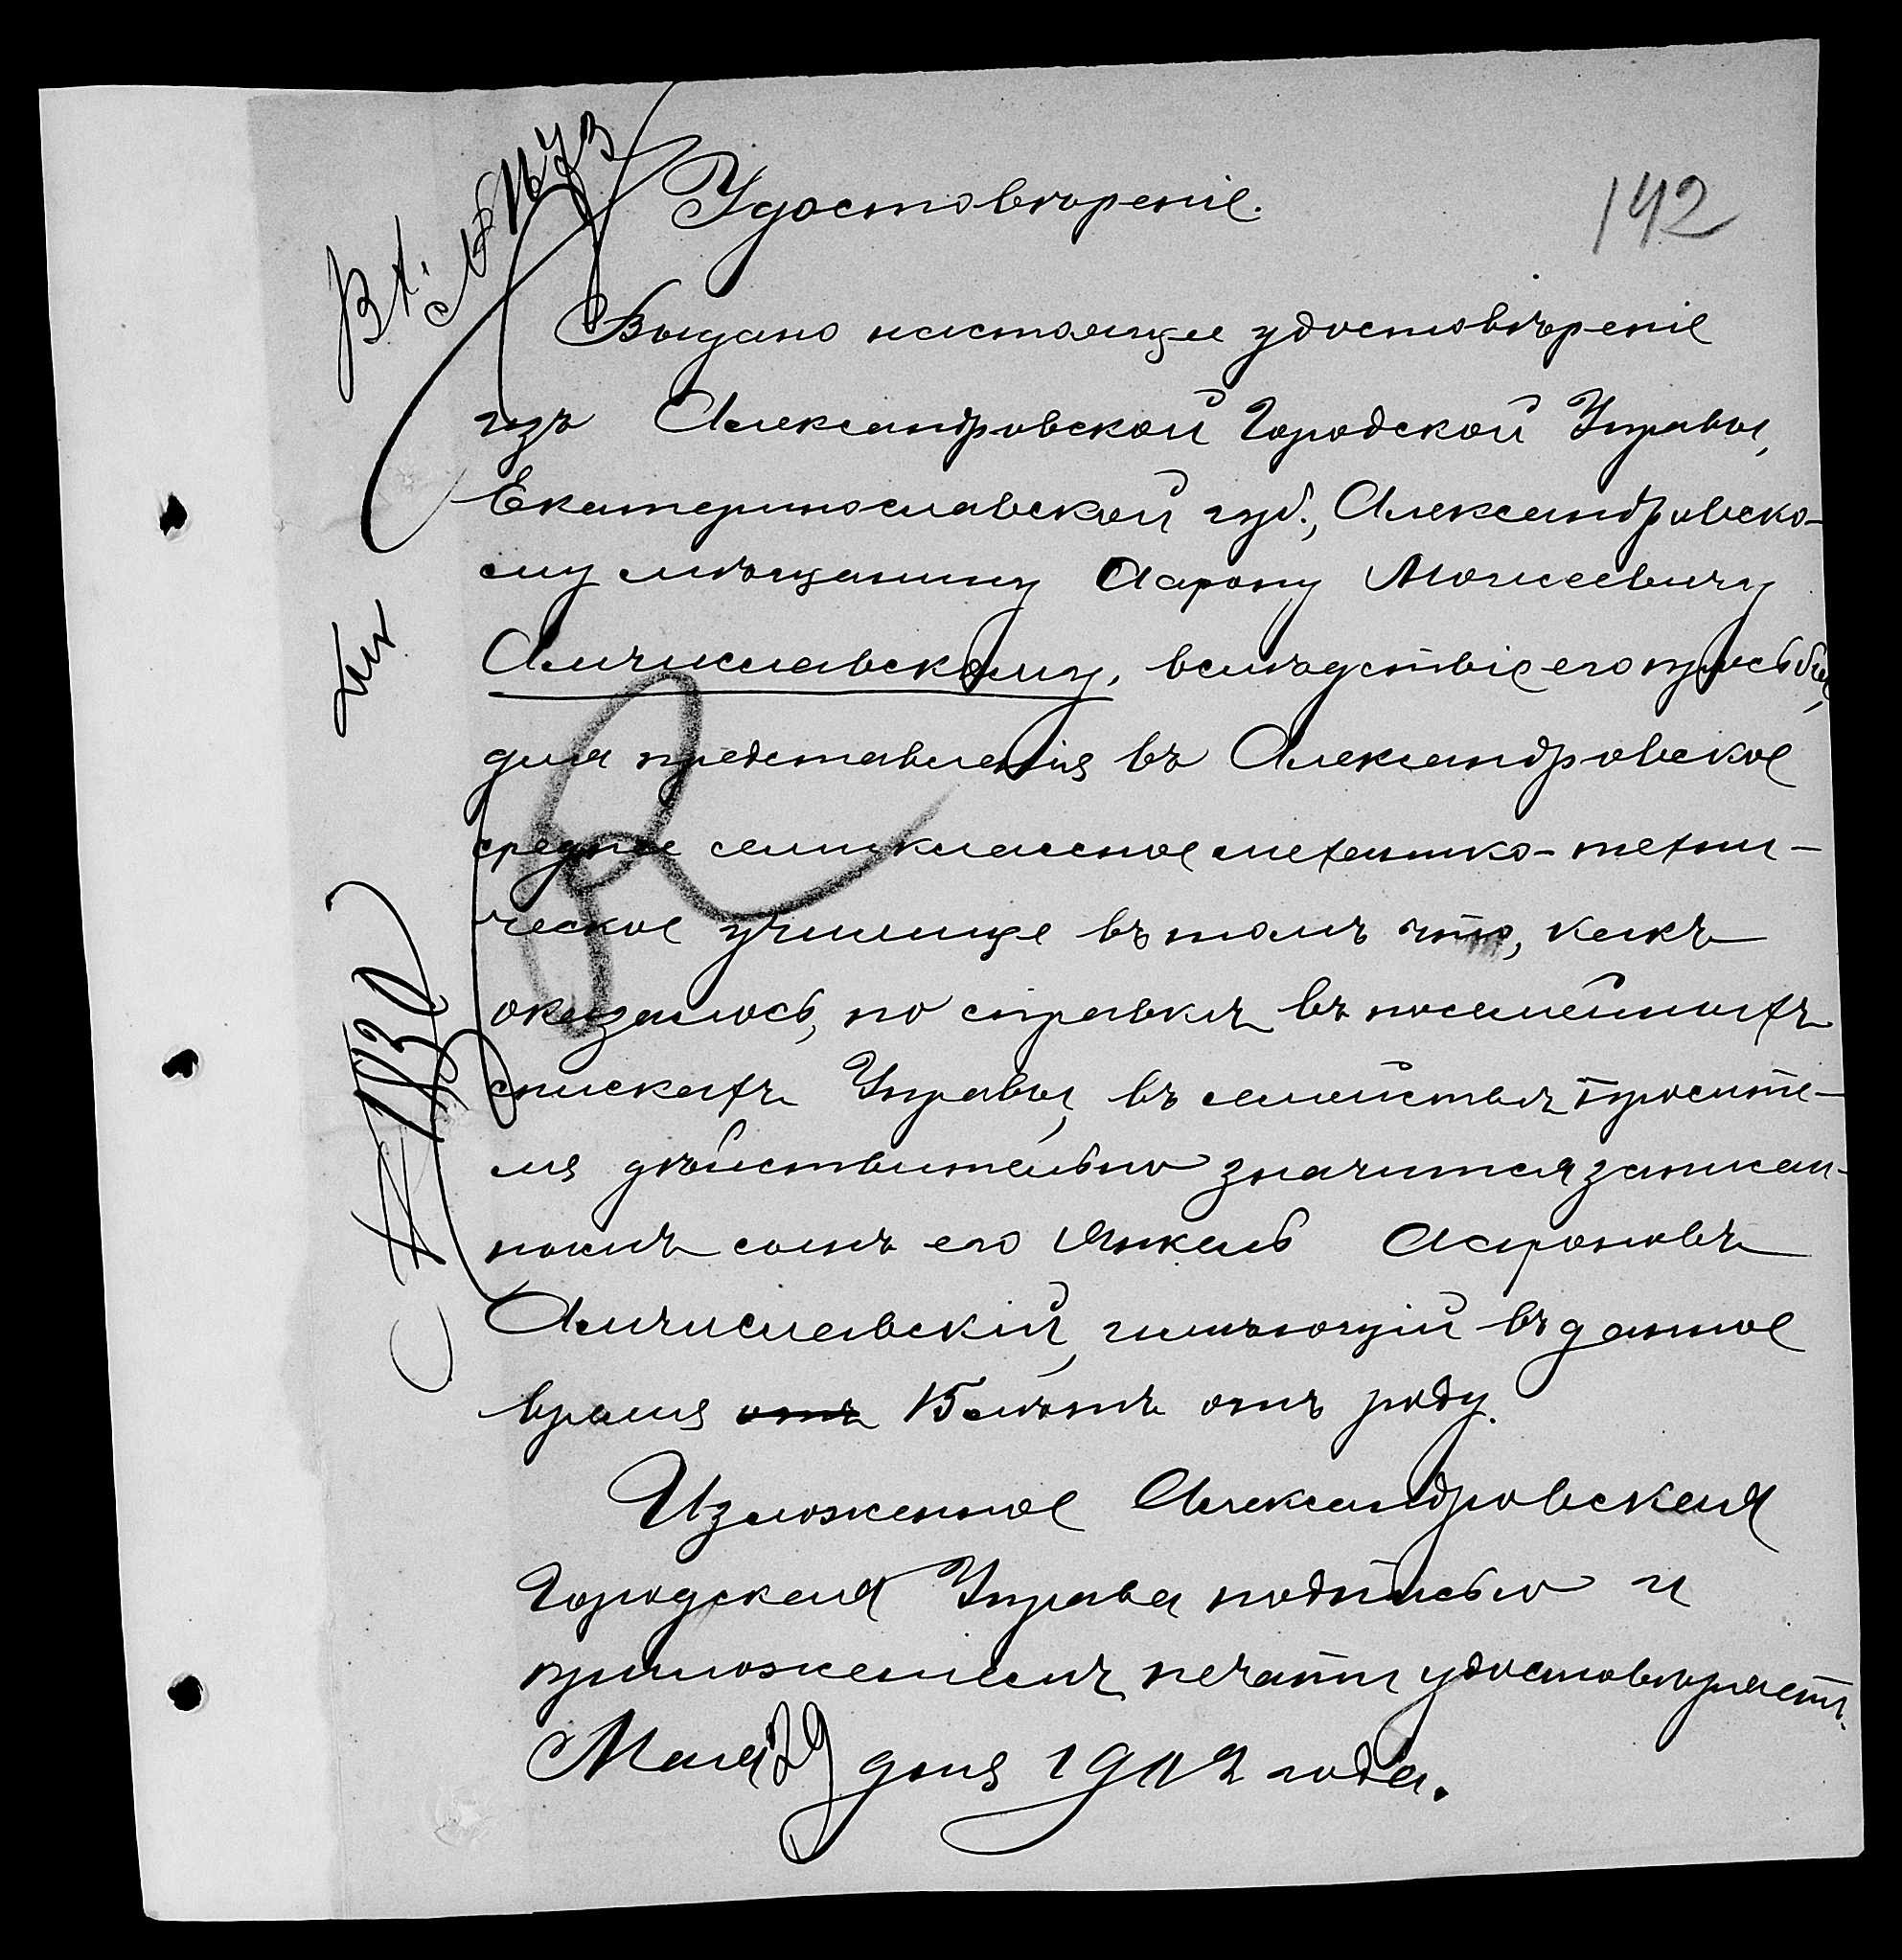 142
Удостовѣреніе.
Выдано настоящее удостовѣреніе
изъ Александровской Городской Управы,
Екатеринославской губ., Александровско-
му мѣщанину Аарону Моисеевичу
Алчиславскому, вслѣдствіе его просьбы,
для представленія въ Александровское
среднее семиклассное механико-техни-
ческое училище въ томъ что, какъ
оказалось, по справкѣ въ посемейныхъ
спискахъ Управы, въ семействѣ просите-
ля дѣйствительно значится записан-
нымъ сынъ его Янкель Аароновъ
Алчиславскій, имѣющій въ данное
время отъ 15 лѣтъ отъ роду.
Изложенное Александровская
Городская Управа подписью и
приложеніемъ печати удостовѣряетъ.
Мая 29 дня 1912 года.
№ 1830